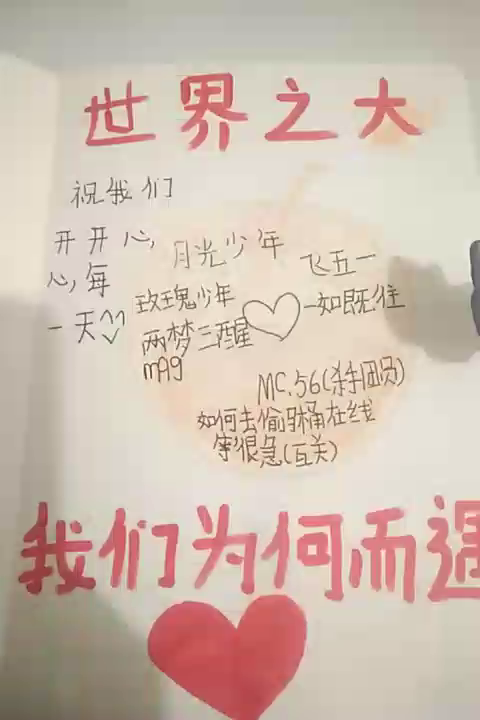 世界之大
祝我们
开开心
心每
一天
月光少年
飞五一
玫瑰少年
一如既往
两梦三醒
mAg
MC.56(杀手团员)
如何去偷骑桶在线
等很急(互关)
我们为何而遇